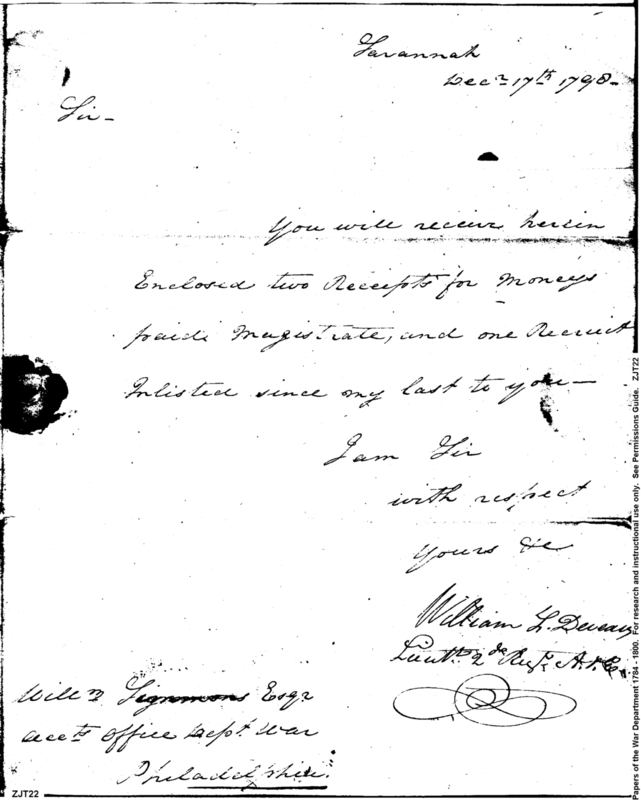 Savannah
Decr 17th 1798-
Sir-
You will receive herein
Enclosed two Receipts for Moneys
paid Magistrate, and one Recruit
Inlisted since my last to you—
I am Sir
with respect
Yours &c
William L. Deveaux
Lieut. 2de Regt. A. & E.
Willm Simmons Esqr
acctt office Dept. War
Philadelphia.
Papers of the War Department 1784-1800. For research and instructional use only. See Permissions Guide. ZJT22
ZJT22